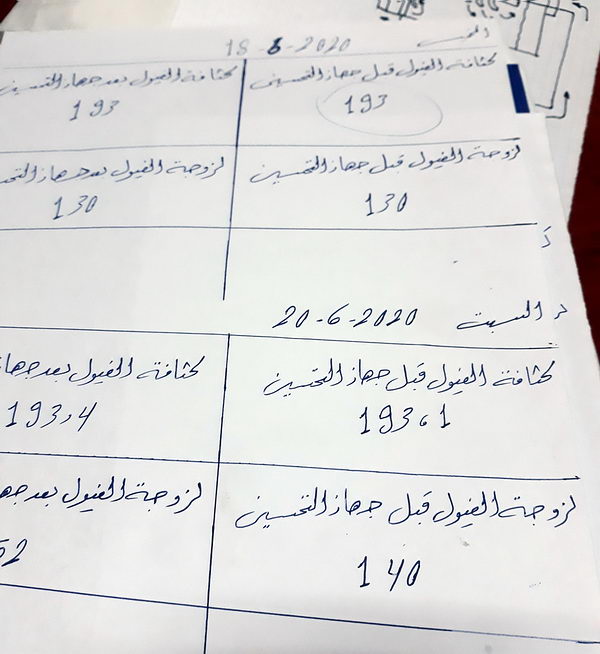 الخميس 18-6-2020
كثافة الفيول قبل جهاز التحسين
كثافة الفيول بعد جهاز التحسين
193
193
لزوجة الفيول قبل جهاز التحسين
لزوجة الفيول بعد جهاز التحـ
130
130
د السبت 20-6-2020
كثافة الفيول قبل جهاز التحسين
كثافة الفيول بعد جها
193،1
193,4
لزوجة الفيول قبل جهاز التحسين
لزوجة الفيول بعد جهـ
140
52